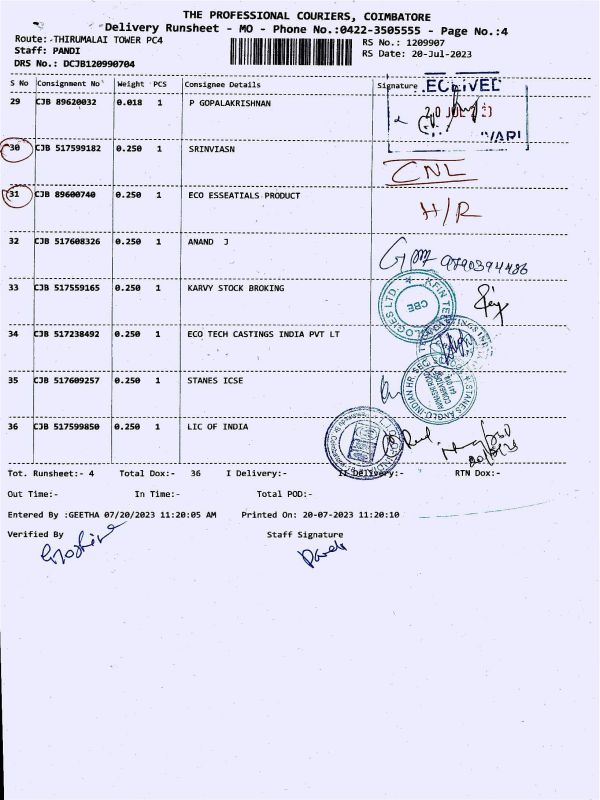 THE PROFESSIONAL COURIERS, COIMBATORE
Delivery Runsheet - MO - Phone No.:0422-3505555 - Page No.:4
Route:-THIRUMALAI TOWER PC4
RS No.: 1209907
Staff: PANDI
RS Date: 20-Jul-2023
DRS No.: DCJB120990704
S No Consignment No Weight PCS Consignee Details Signature
29 CJB 89620032 0.018 1 P GOPALAKRISHNAN
30 CJB 517599182 0.250 1 SRINVIASN
CNL
31 CJB 89600740 0.250 1 ECO ESSEATIALS PRODUCT
H/R
32 CJB 517608326 0.250 1 ANAND J
33 CJB 517559165 0.250 1 KARVY STOCK BROKING
CBE
34 CJB 517238492 0.250 1 ECO TECH CASTINGS INDIA PVT LT
35 CJB 517609257 0.250 1 STANES ICSE
36 CJB 517599850 0.250 1 LIC OF INDIA
Tot. Runsheet:- 4 Total Dox:- 36 I Delivery:- II Delivery:- RTN Dox:-
Out Time:- In Time:- Total POD:-
Entered By :GEETHA 07/20/2023 11:20:05 AM Printed On: 20-07-2023 11:20:10
Verified By Staff Signature